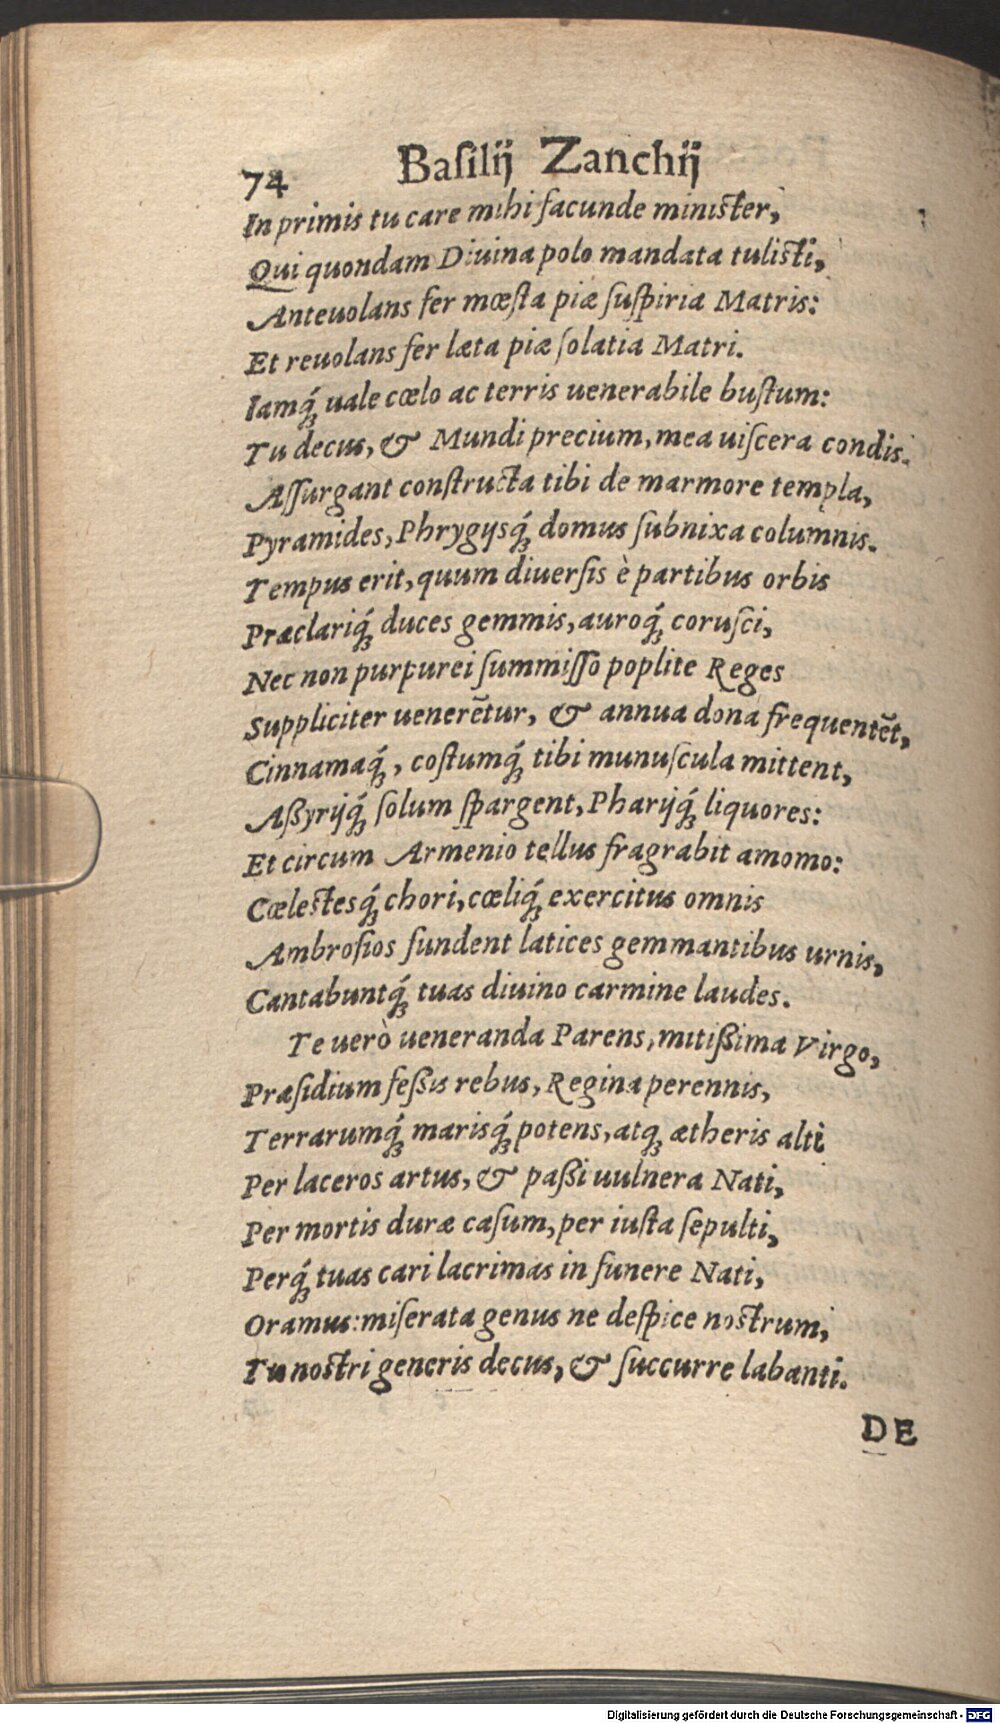 74 Baſilij Zanchij
In primis tu care mihi facunde miniſter,
Qui quondam Diuina polo mandata tuliſti,
Anteuolans fer mœſta piæ ſuſpiria Matris:
Et reuolans fer læta piæ ſolatia Matri.
Iamq́; uale cœlo ac terris uenerabile buſtum:
Tu decus, & Mundi precium, mea uiſcera condis.
Aſſurgant conſtructa tibi de marmore templa,
Pyramides, Phrygijsq́; domus ſubnixa columnis.
Tempus erit, quum diuerſis è partibus orbis
Præclariq́; duces gemmis, auroq́; coruſci,
Nec non purpurei ſummiſſo poplite Reges
Suppliciter uenerẽtur, & annua dona frequentẽt,
Cinnamaq́;, coſtumq́; tibi munuſcula mittent,
Aßyrijq́; ſolum ſpargent, Pharijq́; liquores:
Et circum Armenio tellus fragrabit amomo:
Cœleſtesq́; chori, cœliq́; exercitus omnis
Ambroſios fundent latices gemmantibus urnis,
Cantabuntq́; tuas diuino carmine laudes.
Te uerò ueneranda Parens, mitißima Virgo,
Præſidium feßis rebus, Regina perennis,
Terrarumq́; marisq́; potens, atq; ætheris alti
Per laceros artus, & paßi uulnera Nati,
Per mortis duræ caſum, per iuſta ſepulti,
Perq́; tuas cari lacrimas in funere Nati,
Oramus: miſerata genus ne deſpice noſtrum,
Tu noſtri generis decus, & ſuccurre labanti.
DE
Digitalisierung gefördert durch die Deutsche Forschungsgemeinschaft - DFG